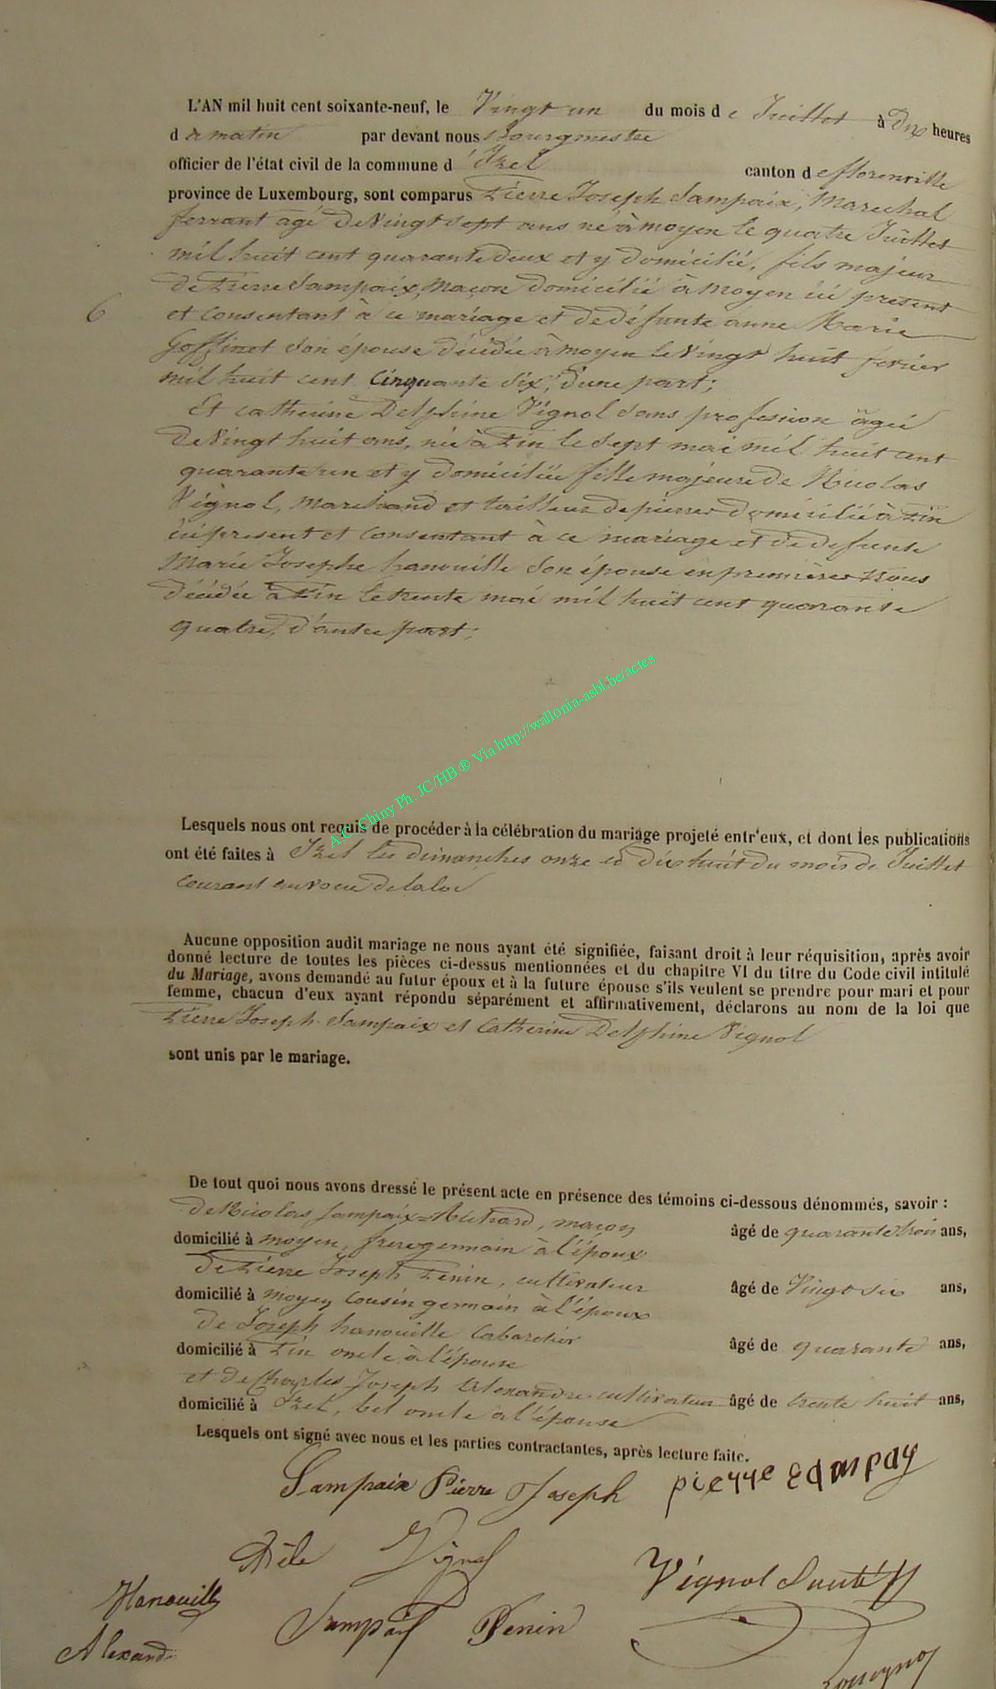 L'AN mil huit cent soixante-neuf, le Vingt un du mois de Juillet à dix heures
du matin par devant nous Bourgmestre
officier de l'état civil de la commune d'Izel canton de florenville
province de Luxembourg, sont comparus Pierre Joseph Sampaix, Marechal
ferrant agé de Vingt sept ans né à moyen le quatre Juillet
mil huit cent quarante deux et y domicilié, fils majeur
de Pierre Sampaix, maçon domicilié à moyen ici present
6
et consentant à ce mariage et de defunte anne Marie
Goffinet son épouse décédée à moyen le Vingt huit fevrier
mil huit cent cinquante six, d'une part;
Et catherine Delphine Vignol sans profession âgée
de Vingt huit ans, née à Pin le sept mai mil huit cent
quarante un et y domiciliée fille majeure de Nicolas
Vignol, marchand et tailleur de pierres domicilié à Pin
ici present et consentant à ce mariage et de defunte
Marie Josephe hanouille son épouse en premières Noces
décédée à Pin le trente mai mil huit cent quarante
quatre, d'autre part;
A.E. Chiny Ph. JC/HB ® Via http://wallonia-asbl.be/actes
Lesquels nous ont requis de procéder à la célébration du mariage projeté entr'eux, et dont les publications
ont été faites à Izel les dimanches onze et dix huit du mois de Juillet
courant au voeu de la loi
Aucune opposition audit mariage ne nous ayant été signifiée, faisant droit à leur réquisition, après avoir
donné lecture de toutes les pièces ci-dessus mentionnées et du chapitre VI du titre du Code civil intitulé
du Mariage, avons demandé au futur époux et à la future épouse s'ils veulent se prendre pour mari et pour
femme, chacun d'eux ayant répondu séparément et affirmativement, déclarons au nom de la loi que
Pierre Joseph Sampaix et Catherine Delphine Vignol
sont unis par le mariage.
De tout quoi nous avons dressé le présent acte en présence des témoins ci-dessous dénommés, savoir :
de Nicolas Sampaix maçon âgé de quarante trois ans,
domicilié à moyen, frere germain à l'époux
de Pierre Joseph Penin, cultivateur âgé de Vingt six ans,
domicilié à moyen cousin germain à l'époux
de Joseph hanouille Cabaretier âgé de quarante ans,
domicilié à Pin oncle à l'épouse
et de Charles Joseph Alexandre cultivateur âgé de trente huit ans,
domicilié à Izel, bel oncle à l'épouse
Lesquels ont signé avec nous et les parties contractantes, après lecture faite.
Sampaix Pierre Joseph pierre sampay
Vignol
Vignol
Hanouille Sampaix Penin
Alexand